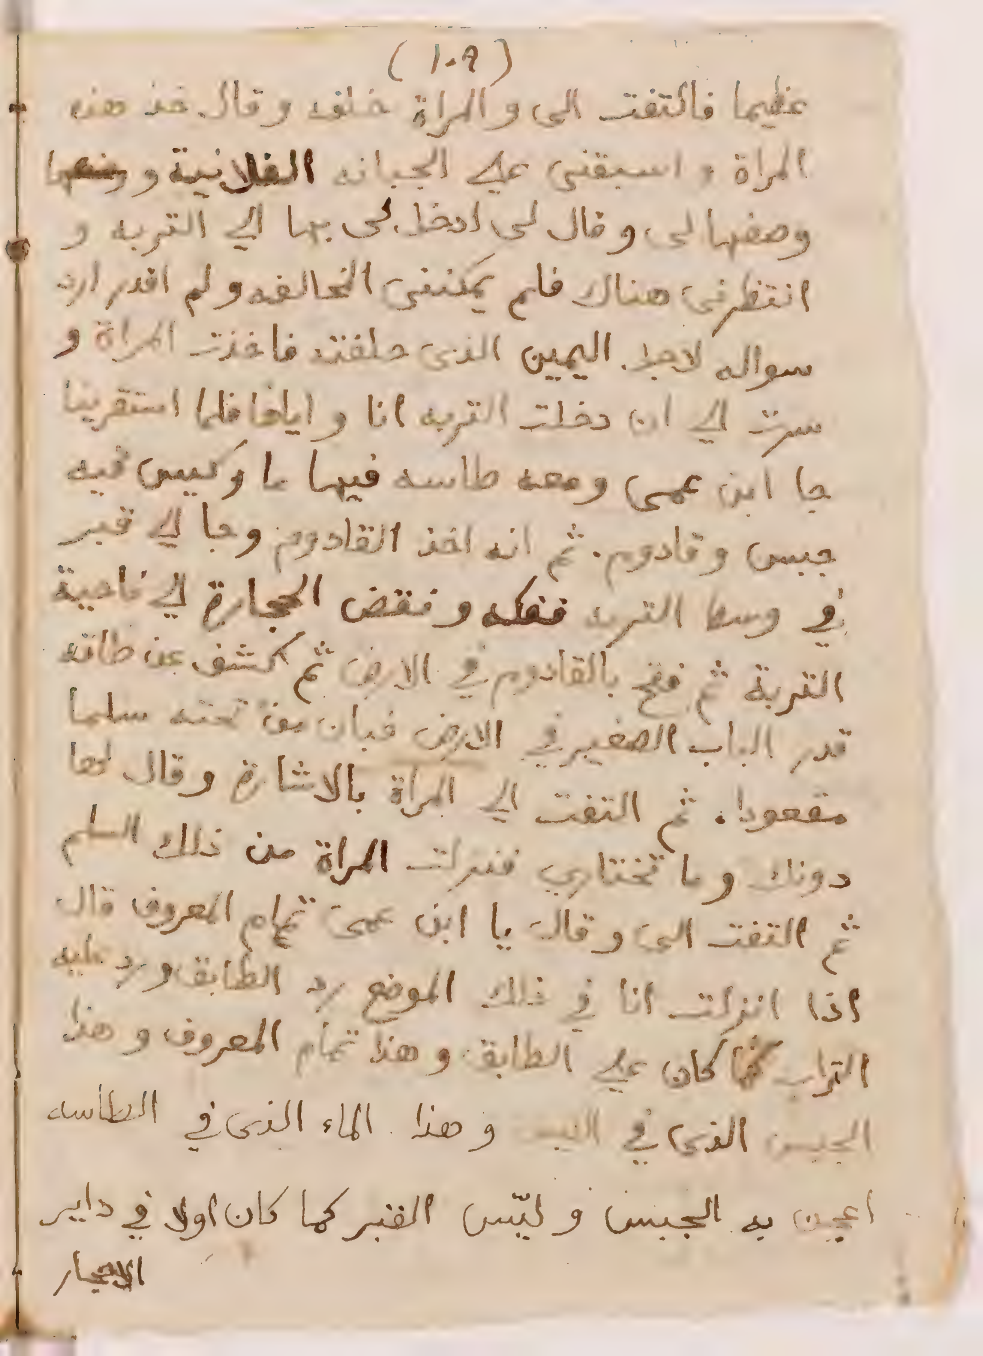 (١٠٩)
عظيما فالتفت الى والمراة خلفه وقال خذ هذه
المراة واسبقنى علي الجبانه الفلانية و
وصفها لى وقال لى ادخل لى بها الي التربه و
انتظرنى هناك فلم يمكننى المخالفه ولم اقدر ارد
سواله لاجل اليمين الذى حلفته فاخذت المراة و
سرت الي ان دخلت التربه انا واياها فلما استقرينا
جا ابن عمى ومعه طاسه فيها ما وكيس فيه
جبس وقادوم. ثم انه اخذ القادوم وجا الي قبر
في وسط التربه ففكه ونقض الحجارة الي ناحية
التربة ثم فتح بالقادوم في الارض ثم كشف عن طاقه
قدر الباب الصغير في الارض فبان من تحته سلما
مقعودا. ثم التفت الي المراة بالاشارة وقال لها
دونك وما تختاري فنزلت المراة من ذلك السلم
ثم التفت الى وقال يا ابن عمى تمام المعروف قال
اذا انزلت انا في ذلك الموضع رد الطابق ورد عليه
التراب كما كان علي الطابق وهذا تمام المعروف وهذا
الجبس الذى في وهذا الماء الذى في الطاسه
اعجن به الجبس وليّس القبر كما كان اولا في داير
الاحجار